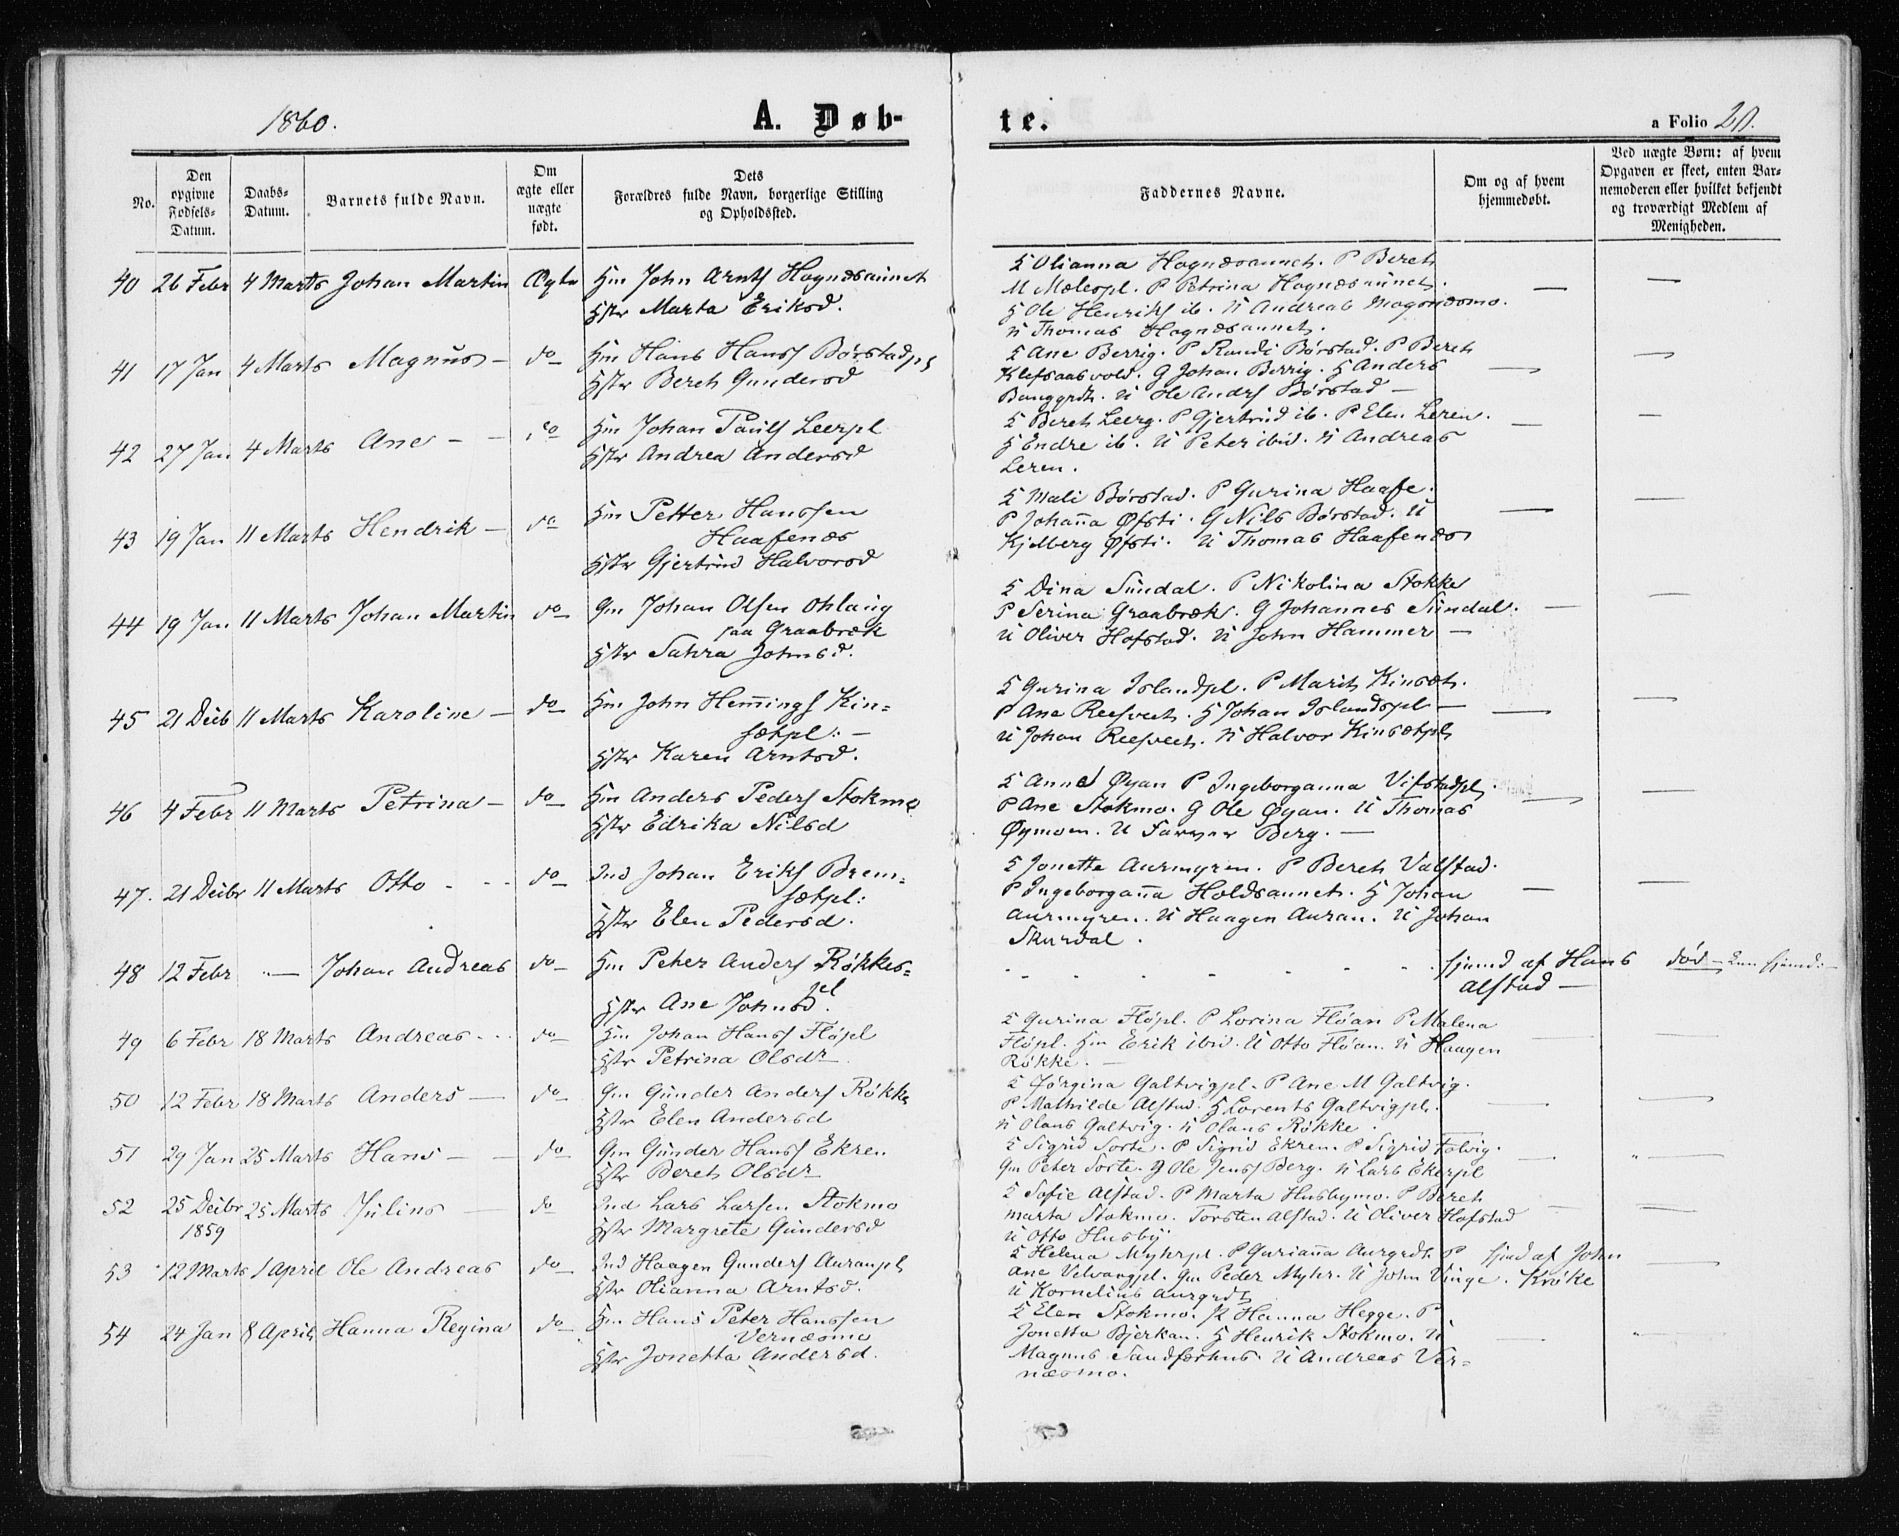 1860.
A. Døb-
te.
a Folio 20.
No.
Den opgivne Fødsels-Datum.
Daabs-Datum.
Barnets fulde Navn.
Om ægte eller uægte født.
Dets Forældres fulde Navn, borgerlige Stilling og Opholdssted.
Faddernes Navne.
Om og af hvem hjemmedøbt.
Ved uægte Børn: af hvem Opgaven er skeet, enten Barnemoderen eller hvilket bekjendt og troværdigt Medlem af Menigheden.
40 26 Febr 4 Marts Johan Martin Ægte Hm John Arnts Hognæsaunet
Hstr Marta Eriksd.
Olianna Hognæsaunet. P Beret
M Mælespl. P Petrina Hognæsaunet.
G Ole Henriks ib. U Andreas Mogsnæsmo.
U Thomas Hognæsaunet.
41 17 Jan 4 Marts Magnus — do Hm Hans Hanss Børstadpl
Hstr Beret Gundersd
Ane Berrig. P Randi Børstad. P Beret
Klefsaasvold. G Johan Berrig. G Anders
Banggrdt. U Ole Anders Børstad —
42 27 Jan 4 Marts Ane — — do Hm Johan Pauls Leerpl
Hstr Andrea Andersd
Beret Leerg. P Gjertrud ib. P Elen Leren.
Endre ib. U Peter ibid. U Andreas
Leren.
43 19 Jan 11 Marts Hendrik — do Hm Petter Hanssen
Haafenæs
Hstr Gjertrud Halvorsd
Mali Børstad. P Gurina Haafe.
P Johanna Øfsti. G Nils Børstad. U
Kjelberg Øfsti. U Thomas Haafenæs
44 19 Jan 11 Marts Johan Martin do Gm Johan Olsen Ohlaug
paa Graabræk
Hstr Sahra Johnsd.
Dina Sundal. P Nikolina Stokke
P Serina Graabræk. G Johannes Sundal.
U Oliver Hofstad. U John Hammer —
45 21 Decb 11 Marts Karoline — do Hm John Hemmings Kin=
sætpl: —
Hstr Karen Arntsd.
Gurina Jslandpl. P Marit Kinsæt.
P Ane Reesvect. Johan Jslandspl —
U Johan Reesvect. U Halvor Kinsætpl
46 4 Febr 11 Marts Petrina — do Hm Anders Peders Stokmo
Hstr Edrika Nilsd
Anne Øyan P Ingeborganna Vifstadpl.
P Ane Stokmo. G Ole Øyan. U Thomas
Øymoen. U Farver Berg. —
47. 21 Decbr 11 Marts Otto - - - do Ind Johan Eriks Brem=
sætpl:
Hstr Elen Pedersd.
Jonetta Aurmyren. P Beret Valstad.
P Ingeborganna Holdsaunet. Johan
Aurmyren. U Haagen Auran. U Johan
Skurdal.
48 12 Febr — Johan Andreas do Hm Peter Anders Røkkes=
pl
Hstr Ane Johnsd.
hjemd af Hans død — kun hjemd. —
Alstad —
49 6 Febr 18 Marts Andreas - - - do Hm Johan Hanss Fløpl
Hstr Petrina Olsdr
Gurina Fløpl. P Lorina Fløan P Malena
Fløpl. Hm Erik ibid. U Otto Fløan. U Haagen
Røkke. —
50 12 Febr 18 Marts Anders — do Gm Gunder Anders Røkke
Hstr Elen Andersd
Jørgina Galtvigpl. P Ane M Galtvig.
P Mathilde Alstad. Lorents Galtvigpl.
U Olaus Galtvig. U Olaus Røkke.
51 29 Jan 25 Marts Hans — — do Gm Gunder Hanss Ekren
Hstr Beret Olsdr
Sigrid Sorte. P Sigrid Ekren. P Sigrid Folvig.
Gm Peter Sorte. G Ole Jenss Berg. U Lars Ekerpl
52 25 Decbr
1859 25 Marts Julius — do Ind Lars Larsen Stokmo
Hstr Margrete Gundersd
Sofie Alstad. P Marta Husbymo. P Beret
Marta Stokmo. Torsten Alstad. U Oliver Hofstad
U Otto Husby
53 12 Marts 1 April Ole Andreas do Ind Haagen Gunders Auranpl
Hstr Olianna Arntsd.
Helena Myhrpl. P Gurianna Aurgrdt. P hjemd af John
Ane Velvangpl. Gm Peder Myhr. U John Vinge. Krøke
U Kornelius Aurgrdt
54 24 Jan 8 April Hanna Regina do Hm Hans Peter Hanssen
Vernæsmo
Hstr Jonetta Andersd.
Elen Stokmo. P Hanna Hegge. P
Jonetta Bjerkan. Henrik Stokmo. U
Magnus Sandferhus. U Andreas Ver=
næsmo.